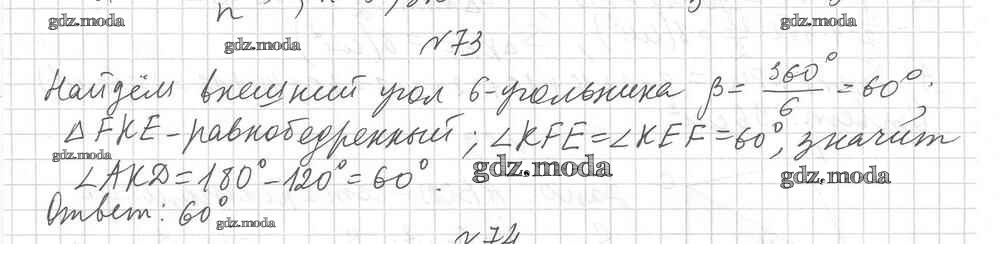 gdz.moda
gdz.moda
gdz.moda
№73
Найдём внешний угол 6-угольника β = 360°/6 = 60°.
△FKE - равнобедренный; ∠KFE = ∠KEF = 60°, значит
gdz.moda
∠AKD = 180° - 120° = 60°.
gdz.moda
gdz.moda
Ответ: 60°
gdz.moda
№74